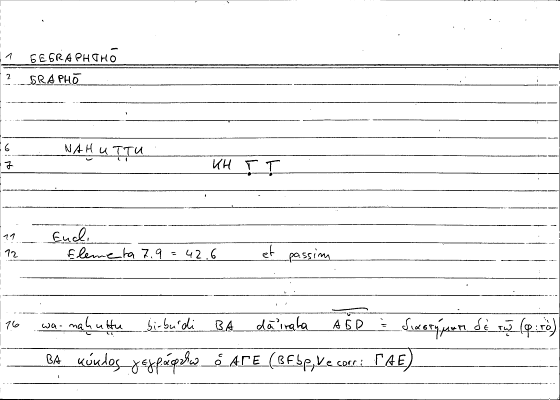 1 GEGRAPHTHŌ
2 GRAPHŌ
6 NAḪUṬṬU
7 KH Ṭ Ṭ
11 Eucl.
12 Elementa 7.9 = 42.6 et passim
16 wa-naḫuṭṭu bi-buʿdi BA dāʾirata ΑΒ̄D = διαστήματι δὲ τῷ (φ: τὸ)
BA κύκλος γεγράφθω ὁ ΑΓΕ (BFbp, V e corr: ΓΑΕ)